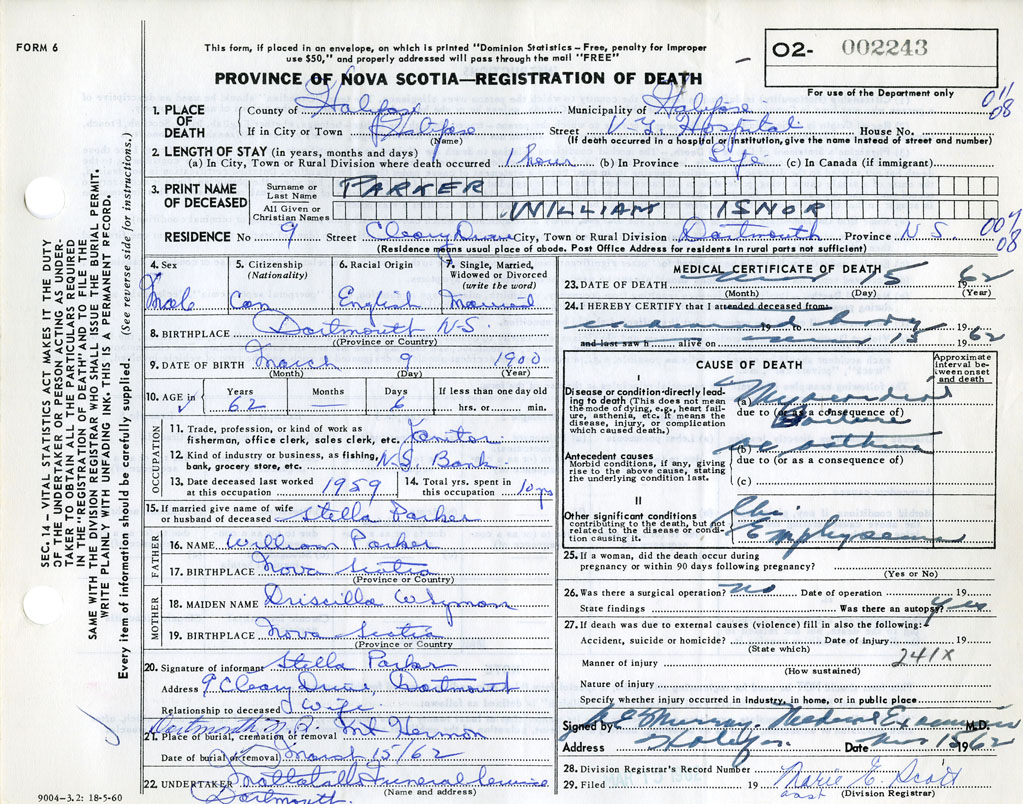 FORM 6
This form, if placed in an envelope, on which is printed "Dominion Statistics – Free, penalty for improper
use $50," and properly addressed will pass through the mail "FREE"
O2- 002243
For use of the Department only
PROVINCE OF NOVA SCOTIA—REGISTRATION OF DEATH
011
08
1. PLACE OF DEATH
County of Halifax Municipality of Halifax
If in City or Town Halifax Street V.G. Hospital House No.
(Name) (If death occurred in a hospital or institution, give the name instead of street and number)
2. LENGTH OF STAY (in years, months and days)
(a) In City, Town or Rural Division where death occurred 1 hour (b) In Province Life (c) In Canada (if immigrant)
3. PRINT NAME OF DECEASED
Surname or Last Name PARKER
All Given or Christian Names WILLIAM ISNOR
RESIDENCE No 9 Street Cleary Drive City, Town or Rural Division Dartmouth Province N S
004
08
(Residence means usual place of abode. Post Office Address for residents in rural parts not sufficient)
4. Sex Male
5. Citizenship (Nationality) Can
6. Racial Origin English
7. Single, Married, Widowed or Divorced (write the word) Married
8. BIRTHPLACE Dartmouth N-S.
(Province or Country)
9. DATE OF BIRTH March 9 1900
(Month) (Day) (Year)
10. AGE in Years 62 Months — Days 6 If less than one day old hrs. or min.
OCCUPATION
11. Trade, profession, or kind of work as
fisherman, office clerk, sales clerk, etc. Janitor
12. Kind of industry or business, as fishing,
bank, grocery store, etc. N.S. Bank
13. Date deceased last worked
at this occupation 1959
14. Total yrs. spent in
this occupation 10 yrs
15. If married give name of wife
or husband of deceased Stella Parker
FATHER
16. NAME William Parker
17. BIRTHPLACE Nova Scotia
(Province or Country)
MOTHER
18. MAIDEN NAME Driscilla Wyman
19. BIRTHPLACE Nova Scotia
(Province or Country)
20. Signature of informant Stella Parker
Address 9 Cleary Drive, Dartmouth
Relationship to deceased Wife
Dartmouth
21. Place of burial, cremation or removal Mt Hermon
Date of burial or removal March 15/62
22. UNDERTAKER Mattatall Funeral Service
(Name and address)
Dartmouth
9004-3.2: 18-5-60
MEDICAL CERTIFICATE OF DEATH
23. DATE OF DEATH 15 1962
(Month) (Day) (Year)
24. I HEREBY CERTIFY that I attended deceased from
examined body 19 to 19
and last saw h alive on 15 1962
CAUSE OF DEATH
Approximate interval between onset and death
I
Disease or condition directly leading to death (This does not mean the mode of dying, e.g., heart failure, asthenia, etc. It means the disease, injury, or complication which caused death.)
(a) Myocardial
due to (or as a consequence of)
failure
Antecedent causes
Morbid conditions, if any, giving rise to the above cause, stating the underlying condition last.
(b) asthma
due to (or as a consequence of)
(c)
II
Other significant conditions
contributing to the death, but not related to the disease or condition causing it.
Chr
Emphysema
25. If a woman, did the death occur during
pregnancy or within 90 days following pregnancy?
(Yes or No)
26. Was there a surgical operation? no Date of operation 19
State findings Was there an autopsy? Yes
27. If death was due to external causes (violence) fill in also the following:
Accident, suicide or homicide? Date of injury 19
(State which)
241X
Manner of injury
(How sustained)
Nature of injury
Specify whether injury occurred in industry, in home, or in public place
Signed by Murray - Medical Examiner M.D.
Address Halifax Date 15 1962
28. Division Registrar's Record Number
29. Filed 19 Marie E. Scott
asst (Division Registrar)
SEC. 14 – VITAL STATISTICS ACT MAKES IT THE DUTY
OF THE UNDERTAKER OR PERSON ACTING AS UNDER-
TAKER TO OBTAIN ALL THE PARTICULARS REQUIRED
IN THE "REGISTRATION OF DEATH" AND TO FILE THE
SAME WITH THE DIVISION REGISTRAR WHO SHALL ISSUE THE BURIAL PERMIT.
WRITE PLAINLY WITH UNFADING INK. THIS IS A PERMANENT RECORD.
Every item of information should be carefully supplied. (See reverse side for instructions.)